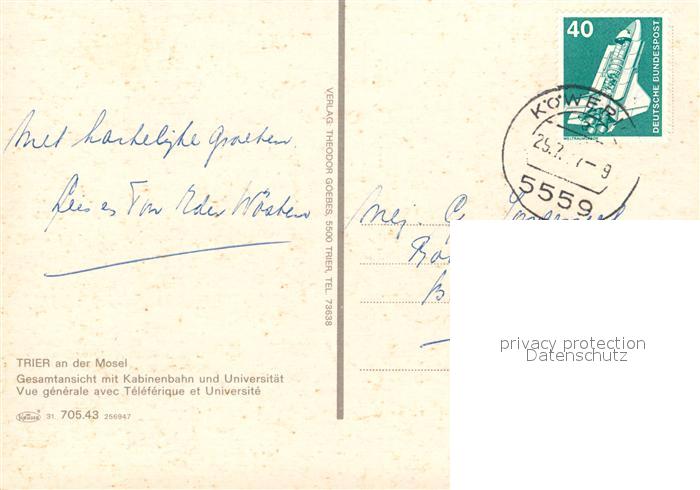 Met hartelijke groeten.
Kees en Ton v d Wösten
Mej. G.
VERLAG THEODOR GOEBES, 5500 TRIER, TEL. 73638
40
DEUTSCHE BUNDESPOST
WELTRAUMLABOR
KÖWER
25.7. 7-9
5559
privacy protection
Datenschutz
TRIER an der Mosel
Gesamtansicht mit Kabinenbahn und Universität
Vue générale avec Téléférique et Université
31. 705.43 256947